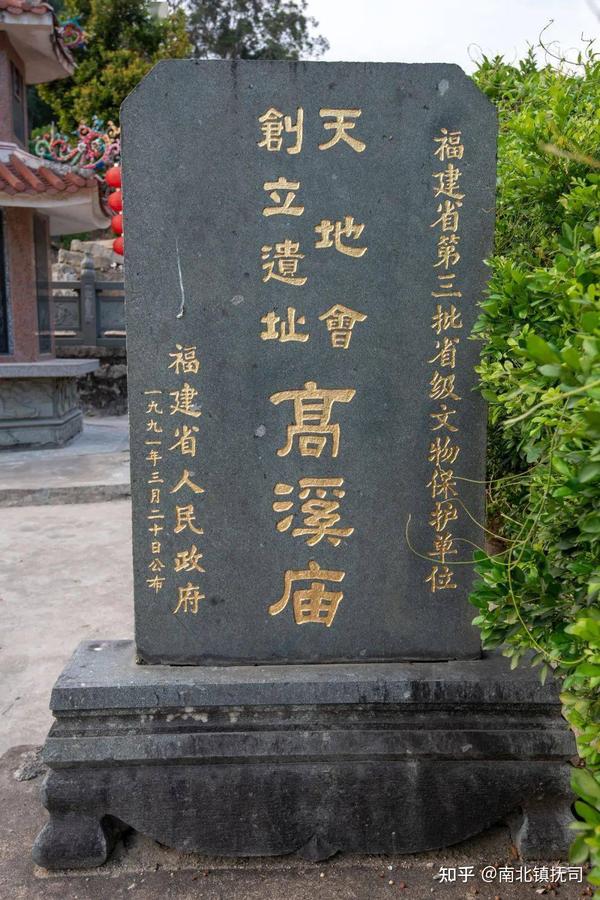 福建省第三批省级文物保护单位
天地會
創立遺址
高溪庙
福建省人民政府
一九九一年三月二十日公布
知乎 @南北镇抚司